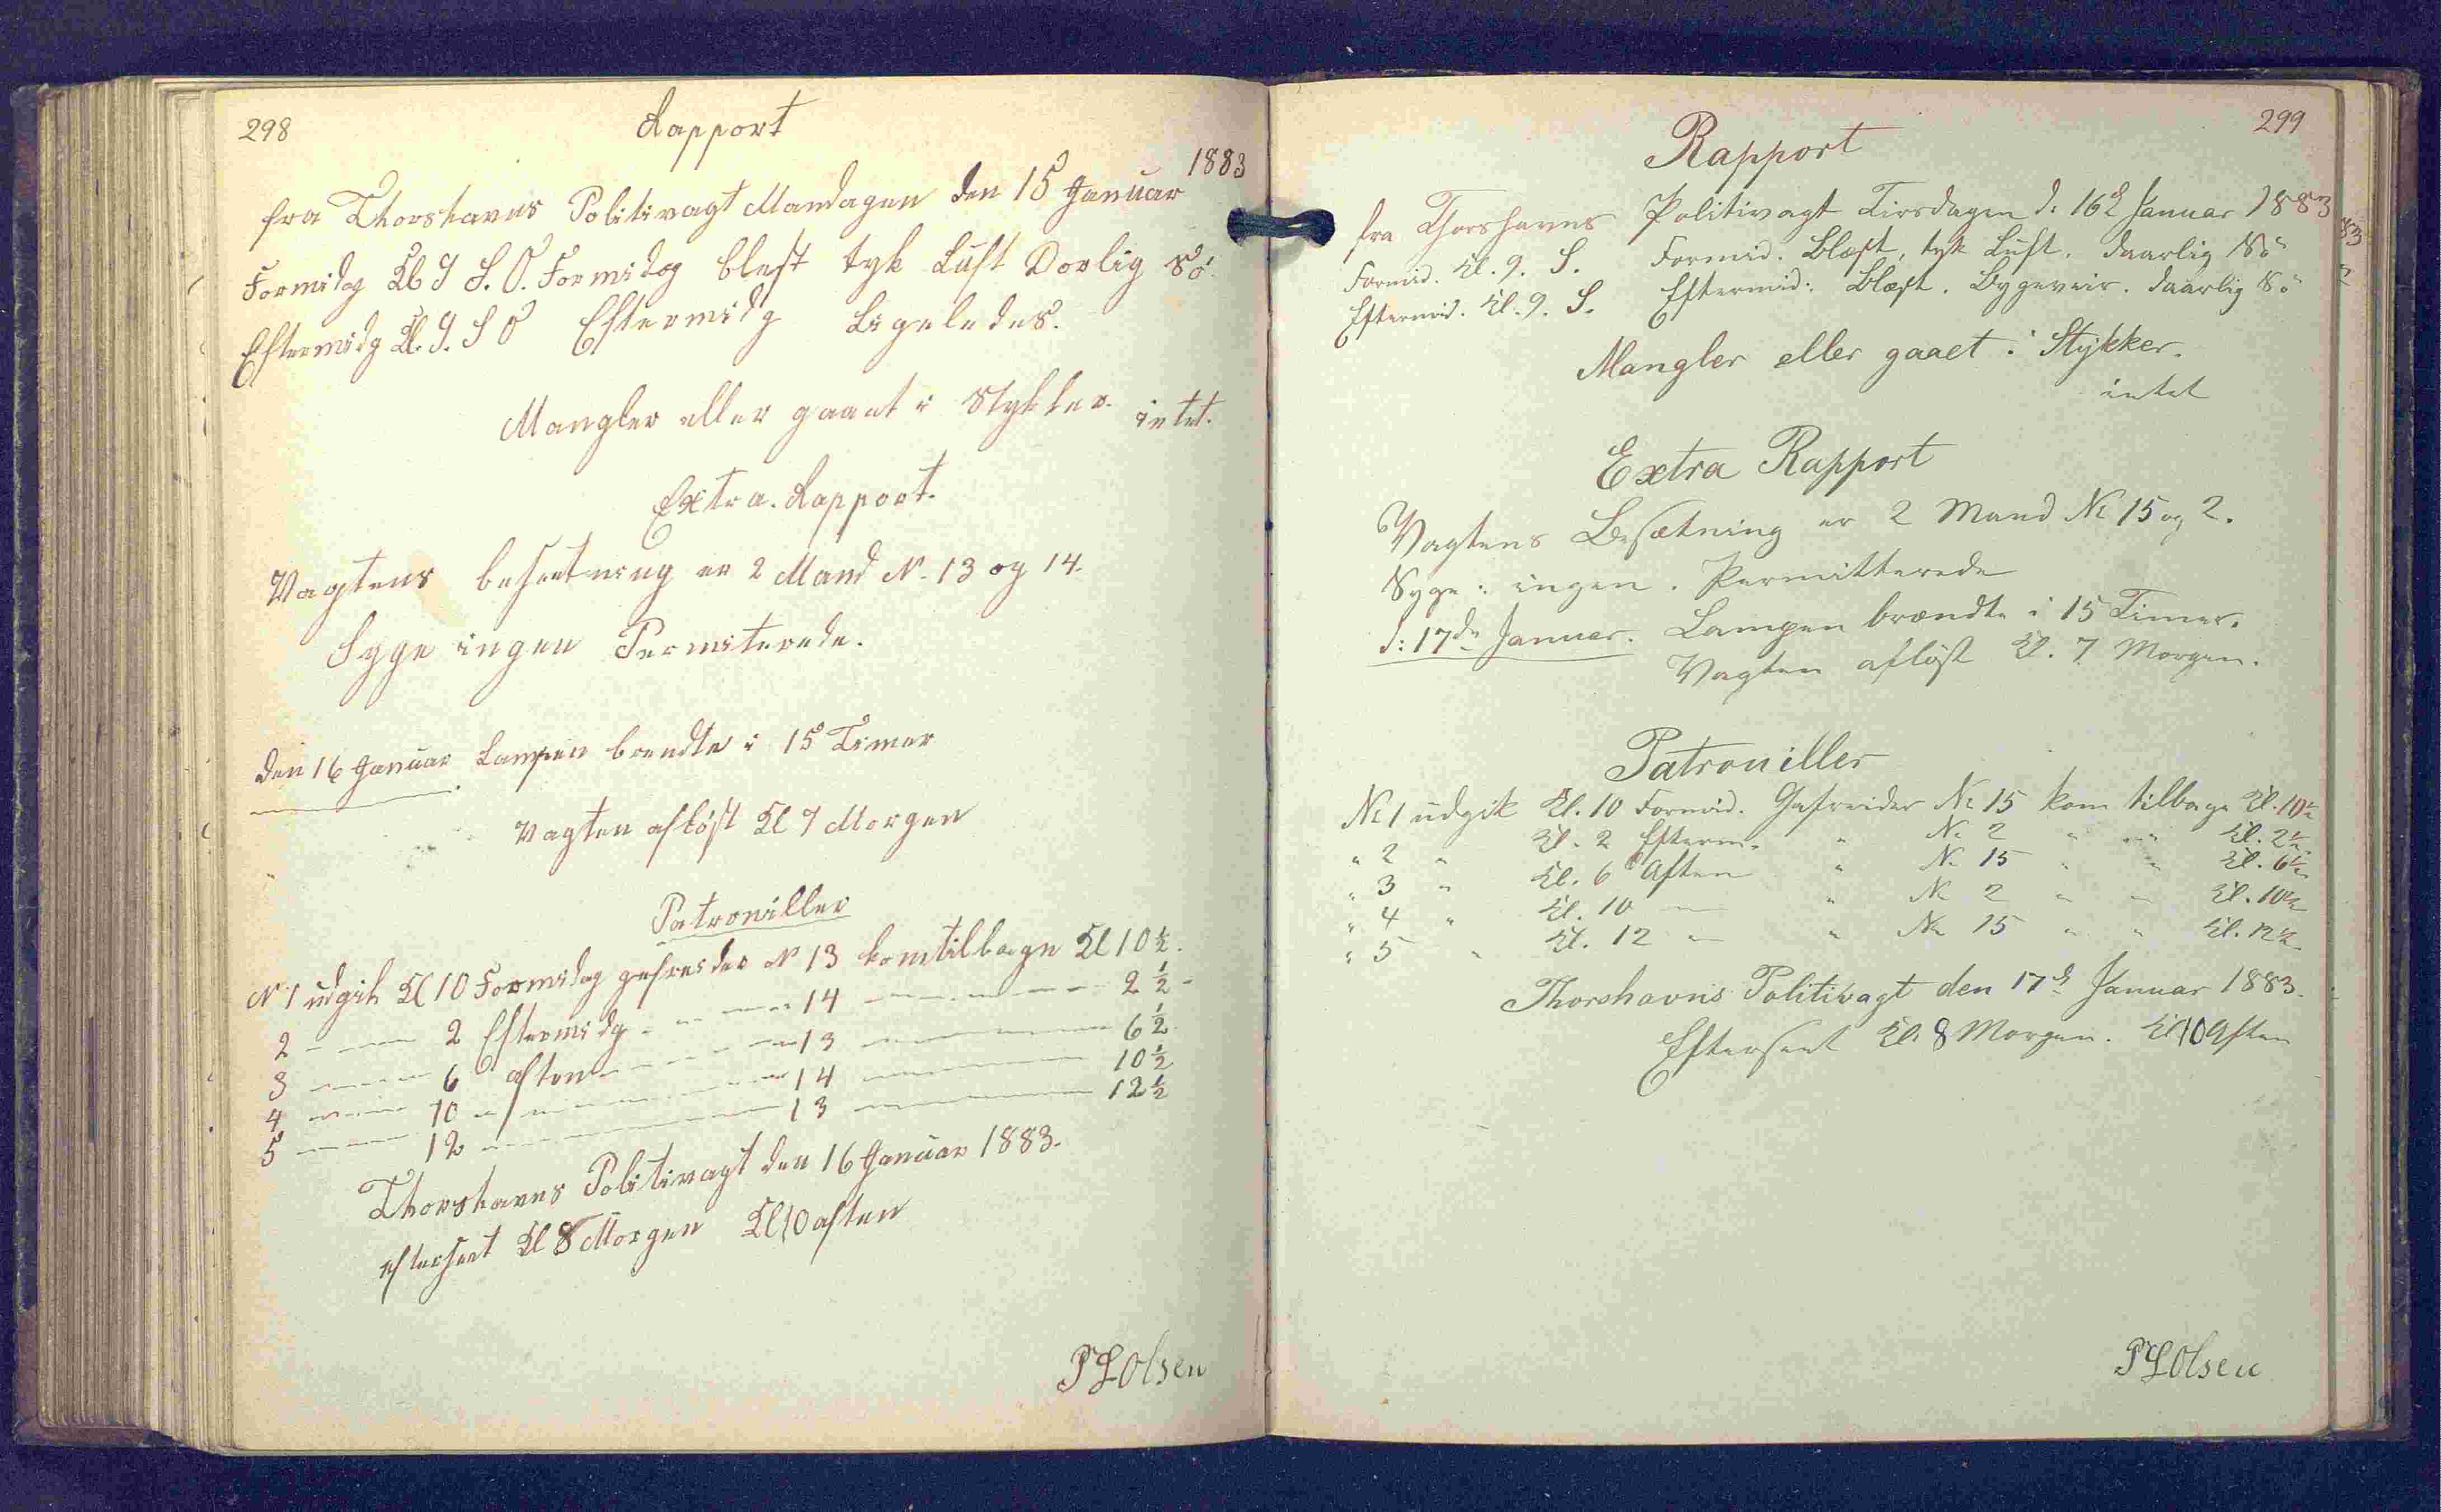 298
Rapport
1883
fra Thorshavns Politivagt Mandagen den 15 Januar
Formidg Kl 9 S.O. Formidag blest tyk Luft Dorlig Sö.
Eftermidg Kl. 9. S O Eftermidg Ligeledes.
Mangler eller gaaet i Stykker. intet.
Extra. Rapport.
Vagtens besætning er 2 Mand N. 13 og 14.
Syge ingen Permiterede.
den 16 Januar. Lampen brendte i 15 Timer
Vagten afløst Kl 7 Morgen
Patrouiller
N 1 udgik Kl 10 Formidag gefreider N 13 kom tilbage Kl 10½.
2 — — 2 Eftermidg — — 14 — — 2½ -
3 — — 6 aften — — 13 — — 6½.
4 — — 10 — — 14 — — 10½
5 — — 12 — — 13 — — 12½
Thorshavns Politivagt den 16 Januar 1883.
efterseet Kl 8 Morgen Kl 10 aften
P L Olsen
299
Rapport
fra Thorshavns Politivagt Tirsdagen d: 16d Januar 1883
Formid. Kl. 9. S. Formid. Blæst, tyk Luft. daarlig Sö
Eftermid. Kl. 9. S. Eftermid: Blæst. Bygeveir. daarlig Sö
Mangler eller gaaet i Stykker.
intet
Extra Rapport
Vagtens Besætning er 2 Mand No 15 og 2.
Syge: ingen. Permitterede
d: 17de Januar. Lampen brændte i 15 Timer.
Vagten afløst Kl. 7 Morgen.
Patrouiller
No 1 udgik Kl. 10 Formid. Gefreider No 15 kom tilbage Kl. 10½
" 2 " Kl. 2 Efterm. " No 2 " " Kl. 2½
" 3 " Kl. 6 Aften " No 15 " " Kl. 6½
" 4 " Kl. 10 — " No 2 " " Kl. 10½
" 5 " Kl. 12 — " No 15 " " Kl. 12½
Thorshavns Politivagt den 17d Januar 1883.
Efterseet Kl. 8 Morgen. Kl 10 Aften
P L Olsen